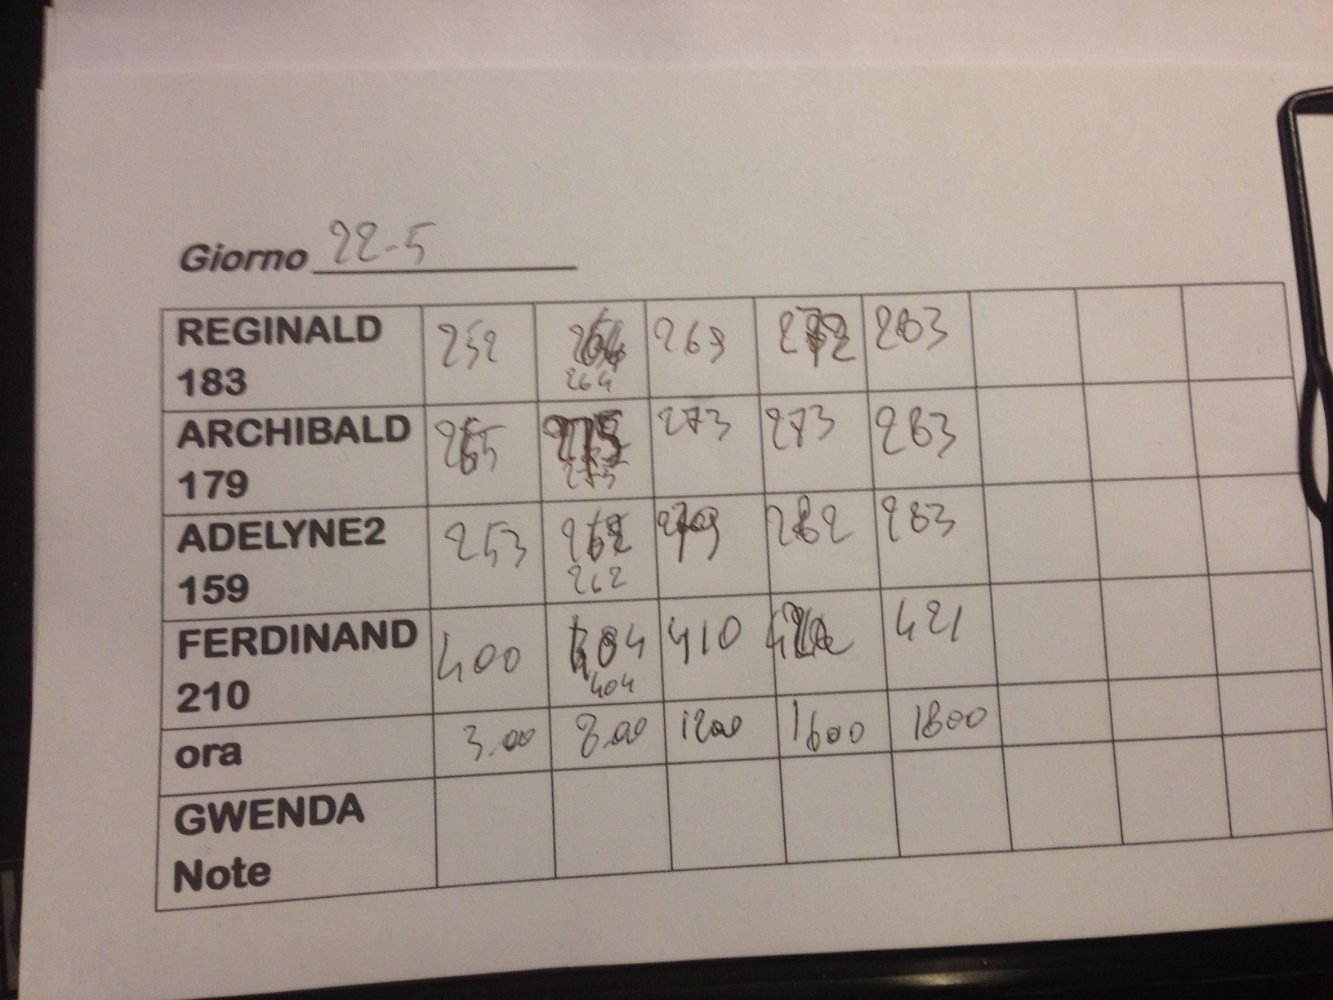 Giorno 22-5
REGINALD 252 264 269 272 283
183
ARCHIBALD 265 275 273 273 283
179
ADELYNE2 253 262 279 282 283
159 262
FERDINAND 400 404 410 421
210 404
ora 3.00 8.00 1200 1600 1800
GWENDA
Note